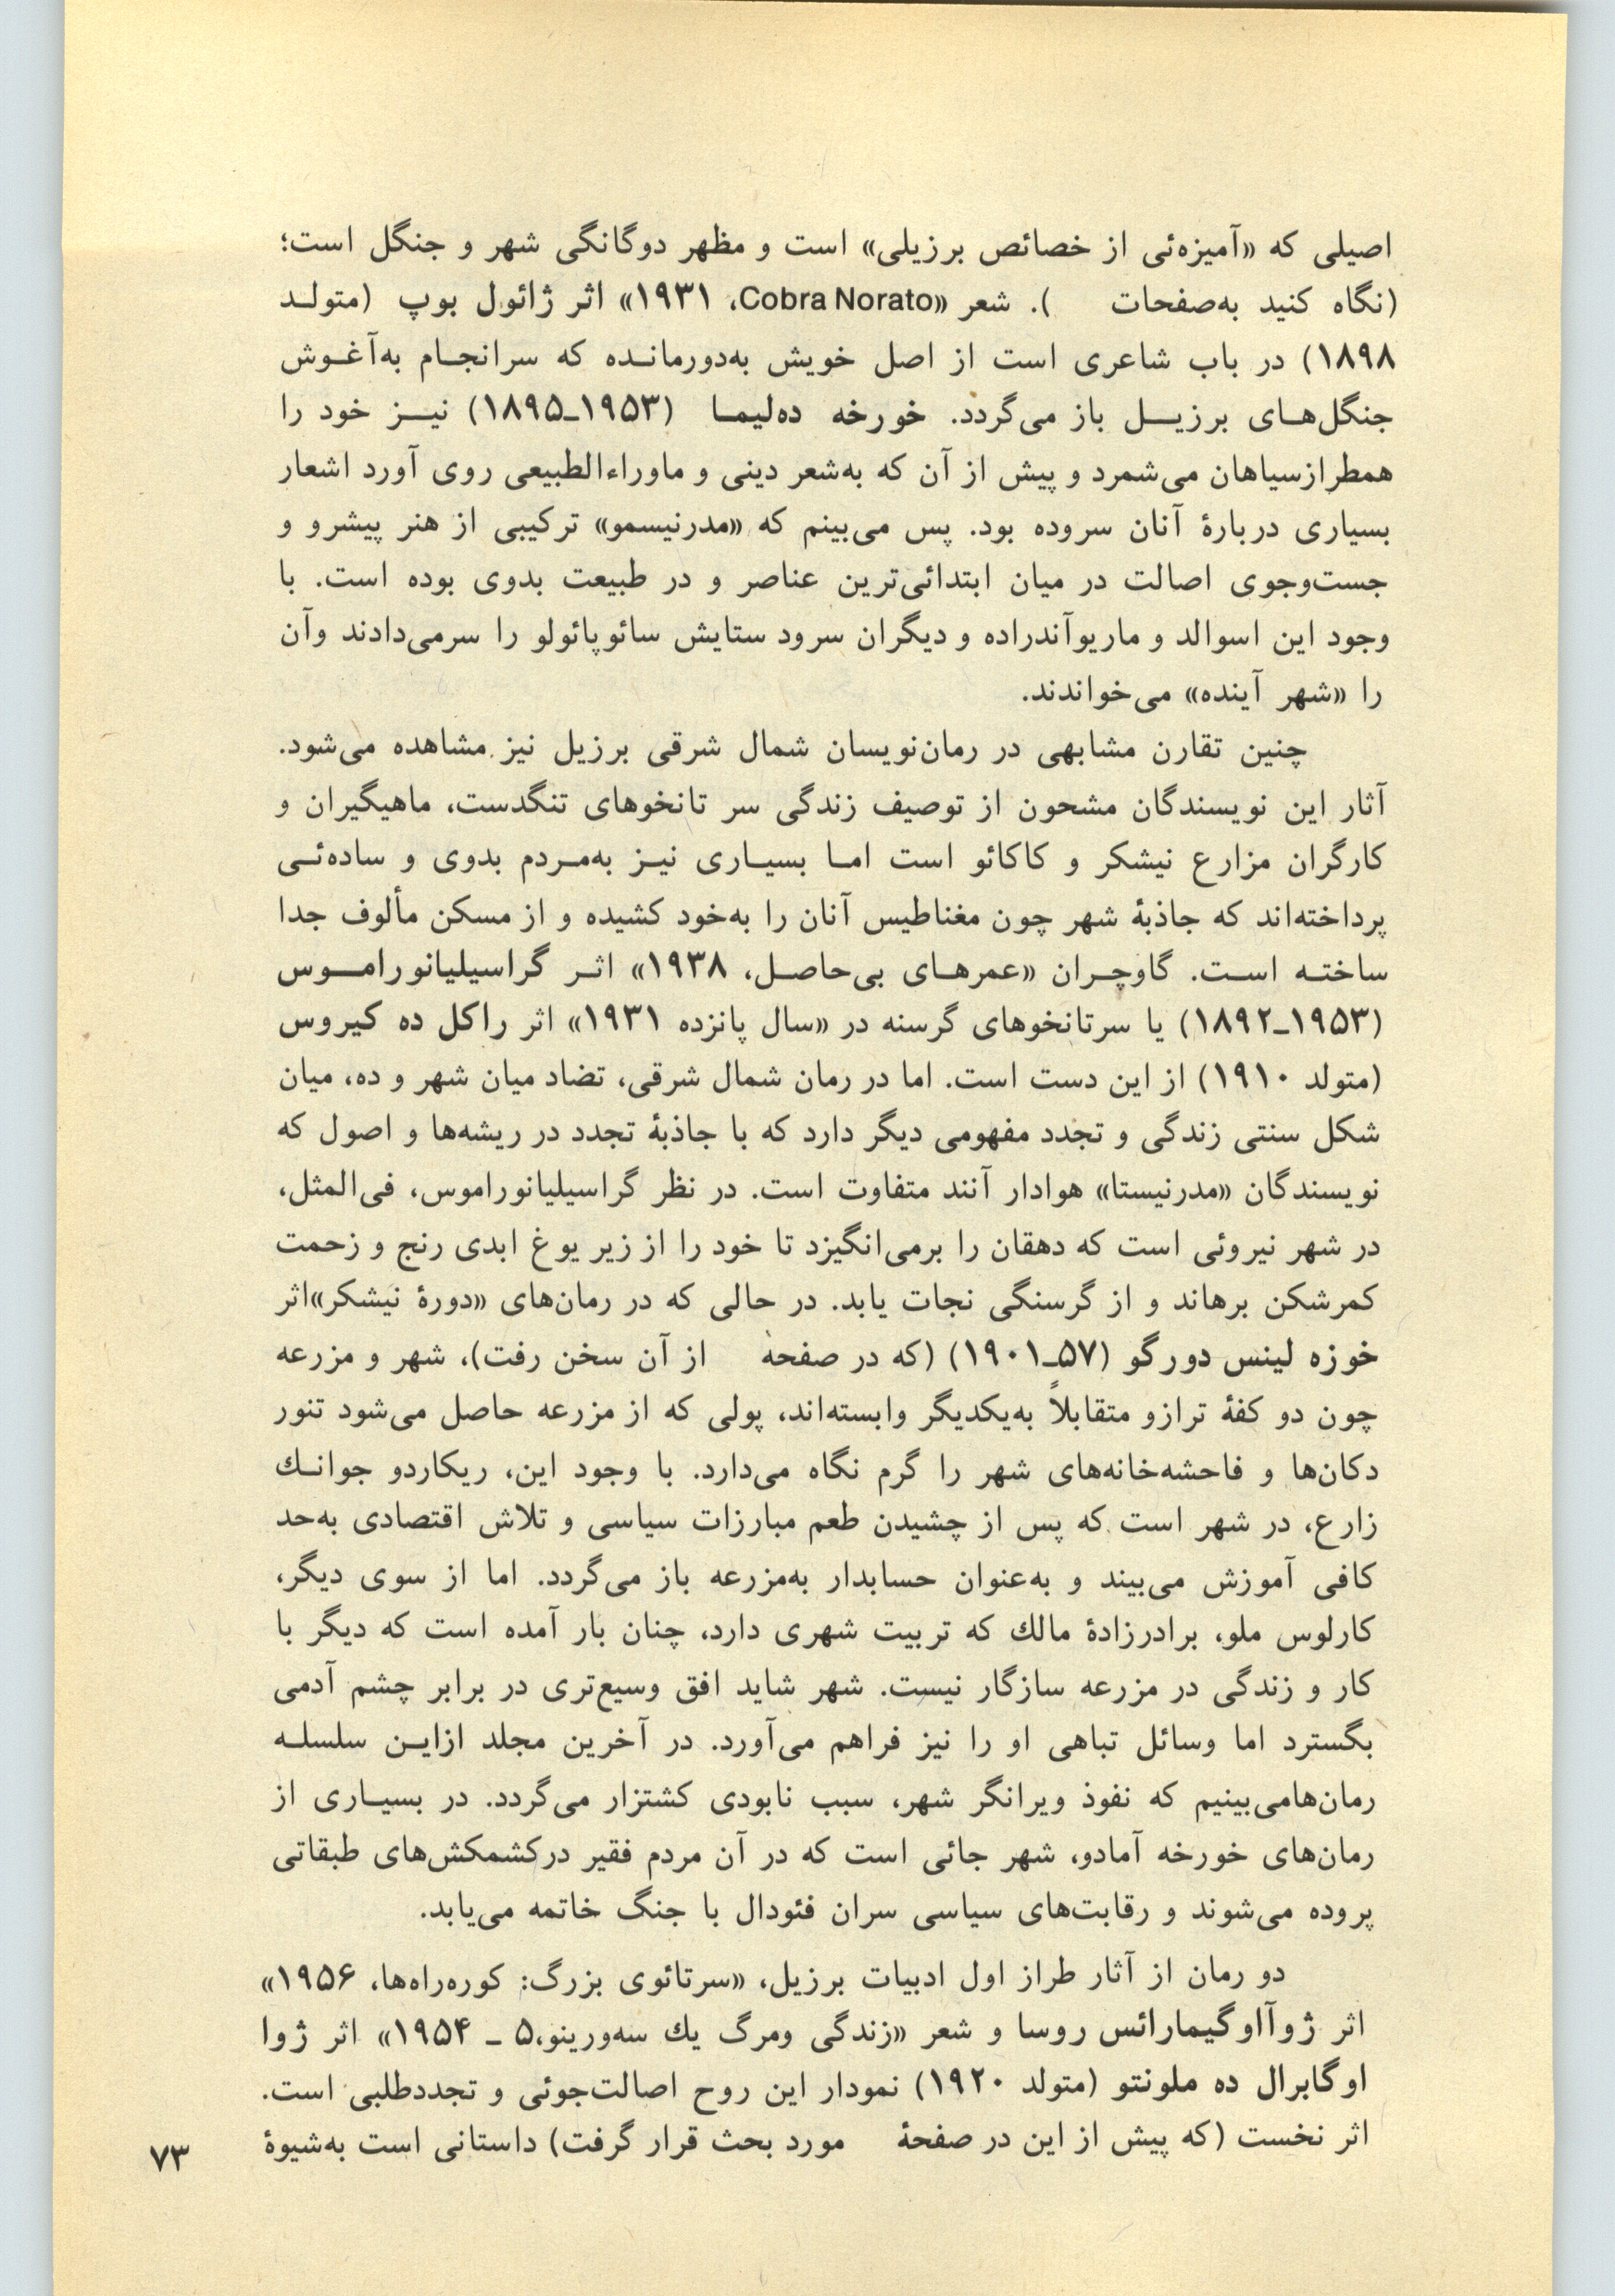 اصیلی که «آمیزه‌ئی از خصائص برزیلی» است و مظهر دوگانگی شهر و جنگل است؛
(نگاه کنید به‌صفحات     ). شعر «Cobra Norato، ۱۹۳۱» اثر ژائول بوپ (متولـد
۱۸۹۸) در باب شاعری است از اصل خویش به‌دورمانـده که سرانجـام به‌آغـوش
جنگل‌هـای برزیـل باز می‌گردد. خورخه ده‌لیمـا (۱۹۵۳ـ۱۸۹۵) نیـز خود را
همطرازسیاهان می‌شمرد و پیش از آن که به‌شعر دینی و ماوراءالطبیعی روی آورد اشعار
بسیاری دربارهٔ آنان سروده بود. پس می‌بینم که «مدرنیسمو» ترکیبی از هنر پیشرو و
جست‌وجوی اصالت در میان ابتدائی‌ترین عناصر و در طبیعت بدوی بوده است. با
وجود این اسوالد و ماریوآندراده و دیگران سرود ستایش سائوپائولو را سرمی‌دادند وآن
را «شهر آینده» می‌خواندند.
چنین تقارن مشابهی در رمان‌نویسان شمال شرقی برزیل نیز مشاهده می‌شود.
آثار این نویسندگان مشحون از توصیف زندگی سر تانخوهای تنگدست، ماهیگیران و
کارگران مزارع نیشکر و کاکائو است امـا بسیـاری نیـز به‌مـردم بدوی و ساده‌ئـی
پرداخته‌اند که جاذبهٔ شهر چون مغناطیس آنان را به‌خود کشیده و از مسکن مألوف جدا
ساختـه اسـت. گاوچـران «عمرهـای بی‌حاصـل، ۱۹۳۸» اثـر گراسیلیانورامـوس
(۱۹۵۳ـ۱۸۹۲) یا سرتانخوهای گرسنه در «سال پانزده ۱۹۳۱» اثر راکل ده کیروس
(متولد ۱۹۱۰) از این دست است. اما در رمان شمال شرقی، تضاد میان شهر و ده، میان
شکل سنتی زندگی و تجدد مفهومی دیگر دارد که با جاذبهٔ تجدد در ریشه‌ها و اصول که
نویسندگان «مدرنیستا» هوادار آنند متفاوت است. در نظر گراسیلیانوراموس، فی‌المثل،
در شهر نیروئی است که دهقان را برمی‌انگیزد تا خود را از زیر یوغ ابدی رنج و زحمت
کمرشکن برهاند و از گرسنگی نجات یابد. در حالی که در رمان‌های «دورهٔ نیشکر»اثر
خوزه لینس دورگو (۵۷ـ۱۹۰۱) (که در صفحهٔ     از آن سخن رفت)، شهر و مزرعه
چون دو کفهٔ ترازو متقابلاً به‌یکدیگر وابسته‌اند، پولی که از مزرعه حاصل می‌شود تنور
دکان‌ها و فاحشه‌خانه‌های شهر را گرم نگاه می‌دارد. با وجود این، ریکاردو جوانـك
زارع، در شهر است که پس از چشیدن طعم مبارزات سیاسی و تلاش اقتصادی به‌حد
کافی آموزش می‌بیند و به‌عنوان حسابدار به‌مزرعه باز می‌گردد. اما از سوی دیگر،
کارلوس ملو، برادرزادهٔ مالك که تربیت شهری دارد، چنان بار آمده است که دیگر با
کار و زندگی در مزرعه سازگار نیست. شهر شاید افق وسیع‌تری در برابر چشم آدمی
بگسترد اما وسائل تباهی او را نیز فراهم می‌آورد. در آخرین مجلد ازایـن سلسلـه
رمان‌هامی‌بینیم که نفوذ ویرانگر شهر، سبب نابودی کشتزار می‌گردد. در بسیـاری از
رمان‌های خورخه آمادو، شهر جائی است که در آن مردم فقیر درکشمکش‌های طبقاتی
پروده می‌شوند و رقابت‌های سیاسی سران فئودال با جنگ خاتمه می‌یابد.
دو رمان از آثار طراز اول ادبیات برزیل، «سرتائوی بزرگ: کوره‌راه‌ها، ۱۹۵۶»
اثر ژوآاوگیمارائس روسا و شعر «زندگی ومرگ یك سه‌ورینو،۵ ـ ۱۹۵۴» اثر ژوا
اوگابرال ده ملونتو (متولد ۱۹۲۰) نمودار این روح اصالت‌جوئی و تجددطلبی است.
اثر نخست (که پیش از این در صفحهٔ     مورد بحث قرار گرفت) داستانی است به‌شیوهٔ
۷۳